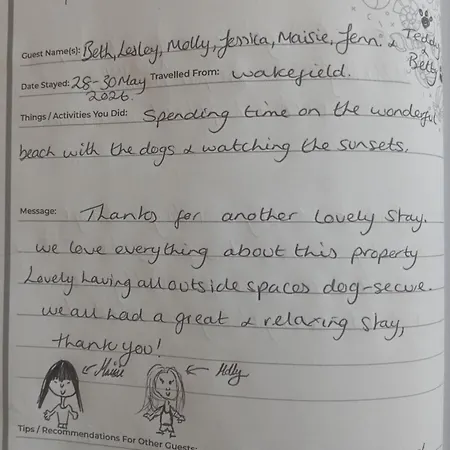 Guest Name(s): Beth, Lesley, Molly, Jessica, Maisie, Jenn. & Teddy & Betty
Date Stayed: 28-30 May 2026. Travelled From: Wakefield.
Things / Activities You Did: Spending time on the wonderful
beach with the dogs & watching the sunsets.
Message: Thanks for another lovely stay.
we love everything about this property
Lovely having all outside spaces dog-secure.
we all had a great & relaxing stay,
thank you!
Maisie
Molly
Tips / Recommendations For Other Guests: